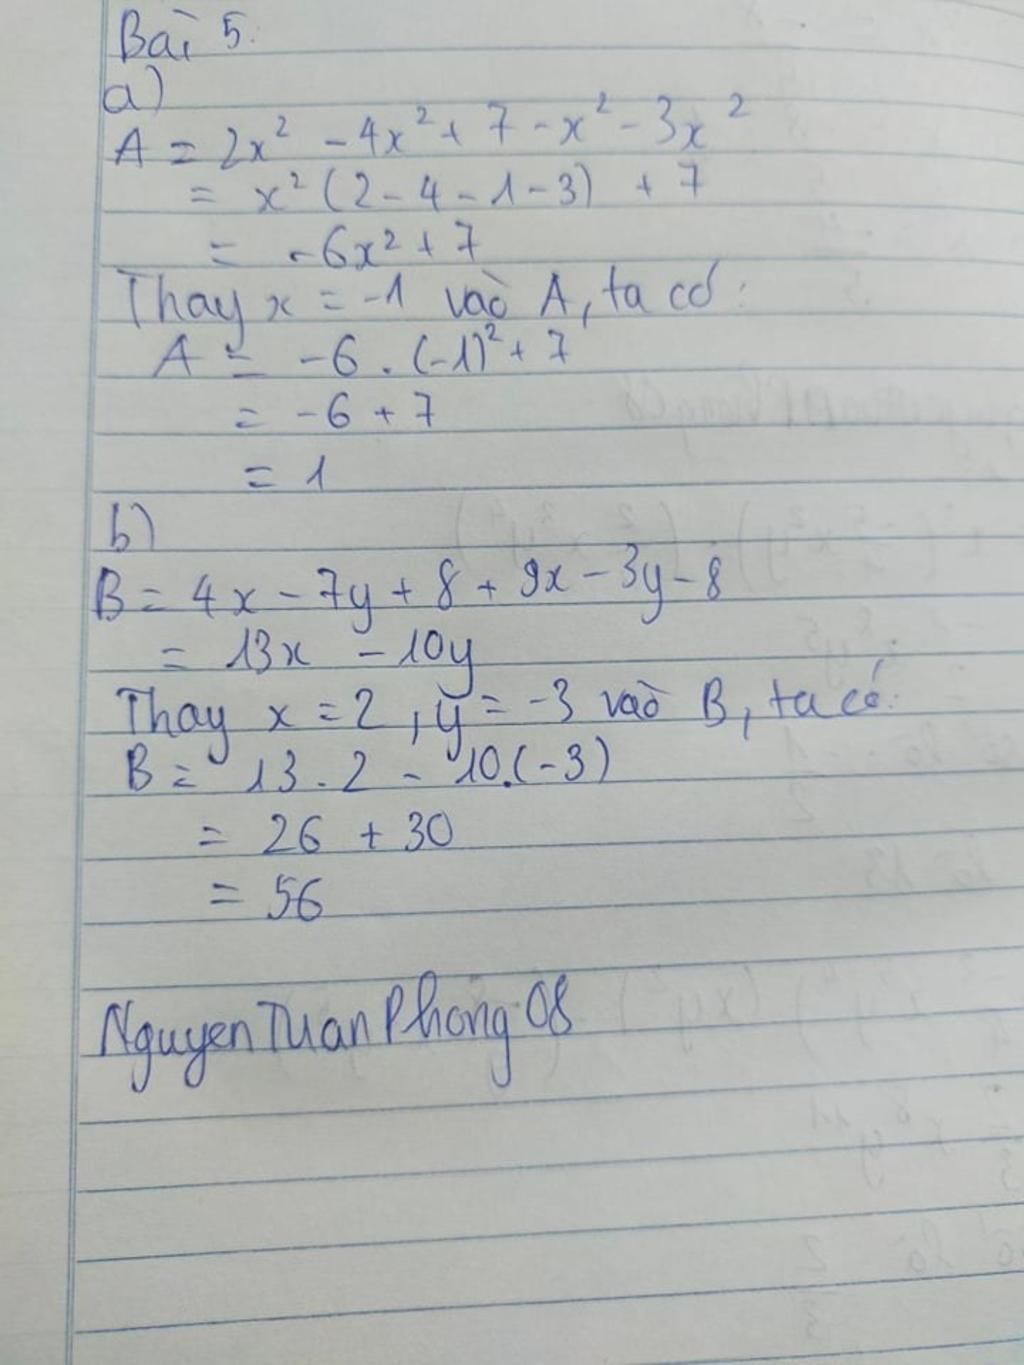 Bài 5:
a)
A = 2x² - 4x² + 7 - x² - 3x²
= x² (2 - 4 - 1 - 3) + 7
= -6x² + 7
Thay x = -1 vào A, ta có:
A = -6 . (-1)² + 7
= -6 + 7
= 1
b)
B = 4x - 7y + 8 + 9x - 3y - 8
= 13x - 10y
Thay x = 2, y = -3 vào B, ta có:
B = 13 . 2 - 10.(-3)
= 26 + 30
= 56
Nguyen Tuan Phong 08